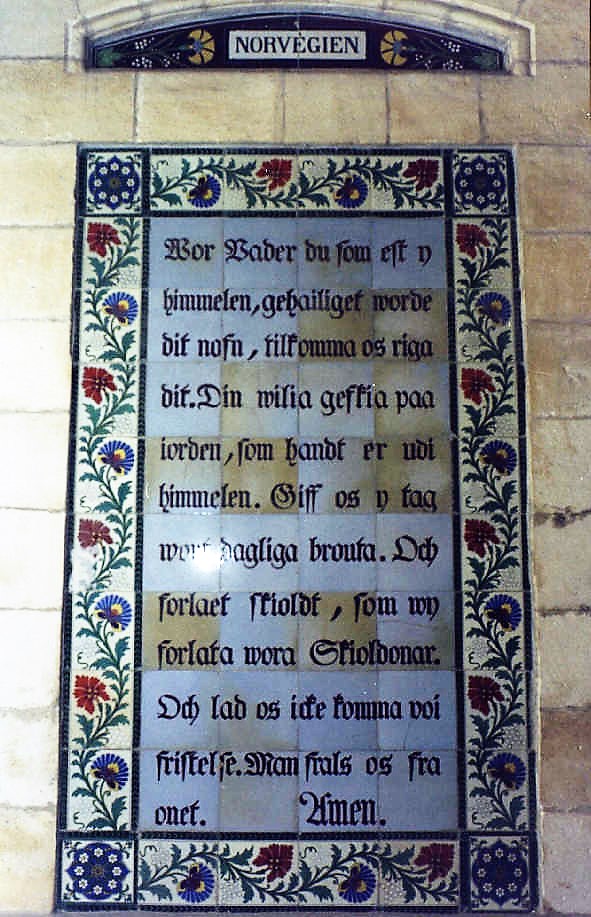 NORVÈGIEN
Wor Vader du som est y
himmelen, gehailiget worde
dit nofn, tilkomma os riga
dit. Din wilia geskia paa
iorden, som handt er udi
himmelen. Giff os y tag
wort dagliga brouta. Och
forlaet skioldt, som wy
forlata wora Skioldonar.
Och lad os icke komma voi
fristelse. Man frals os fra
onet. Amen.